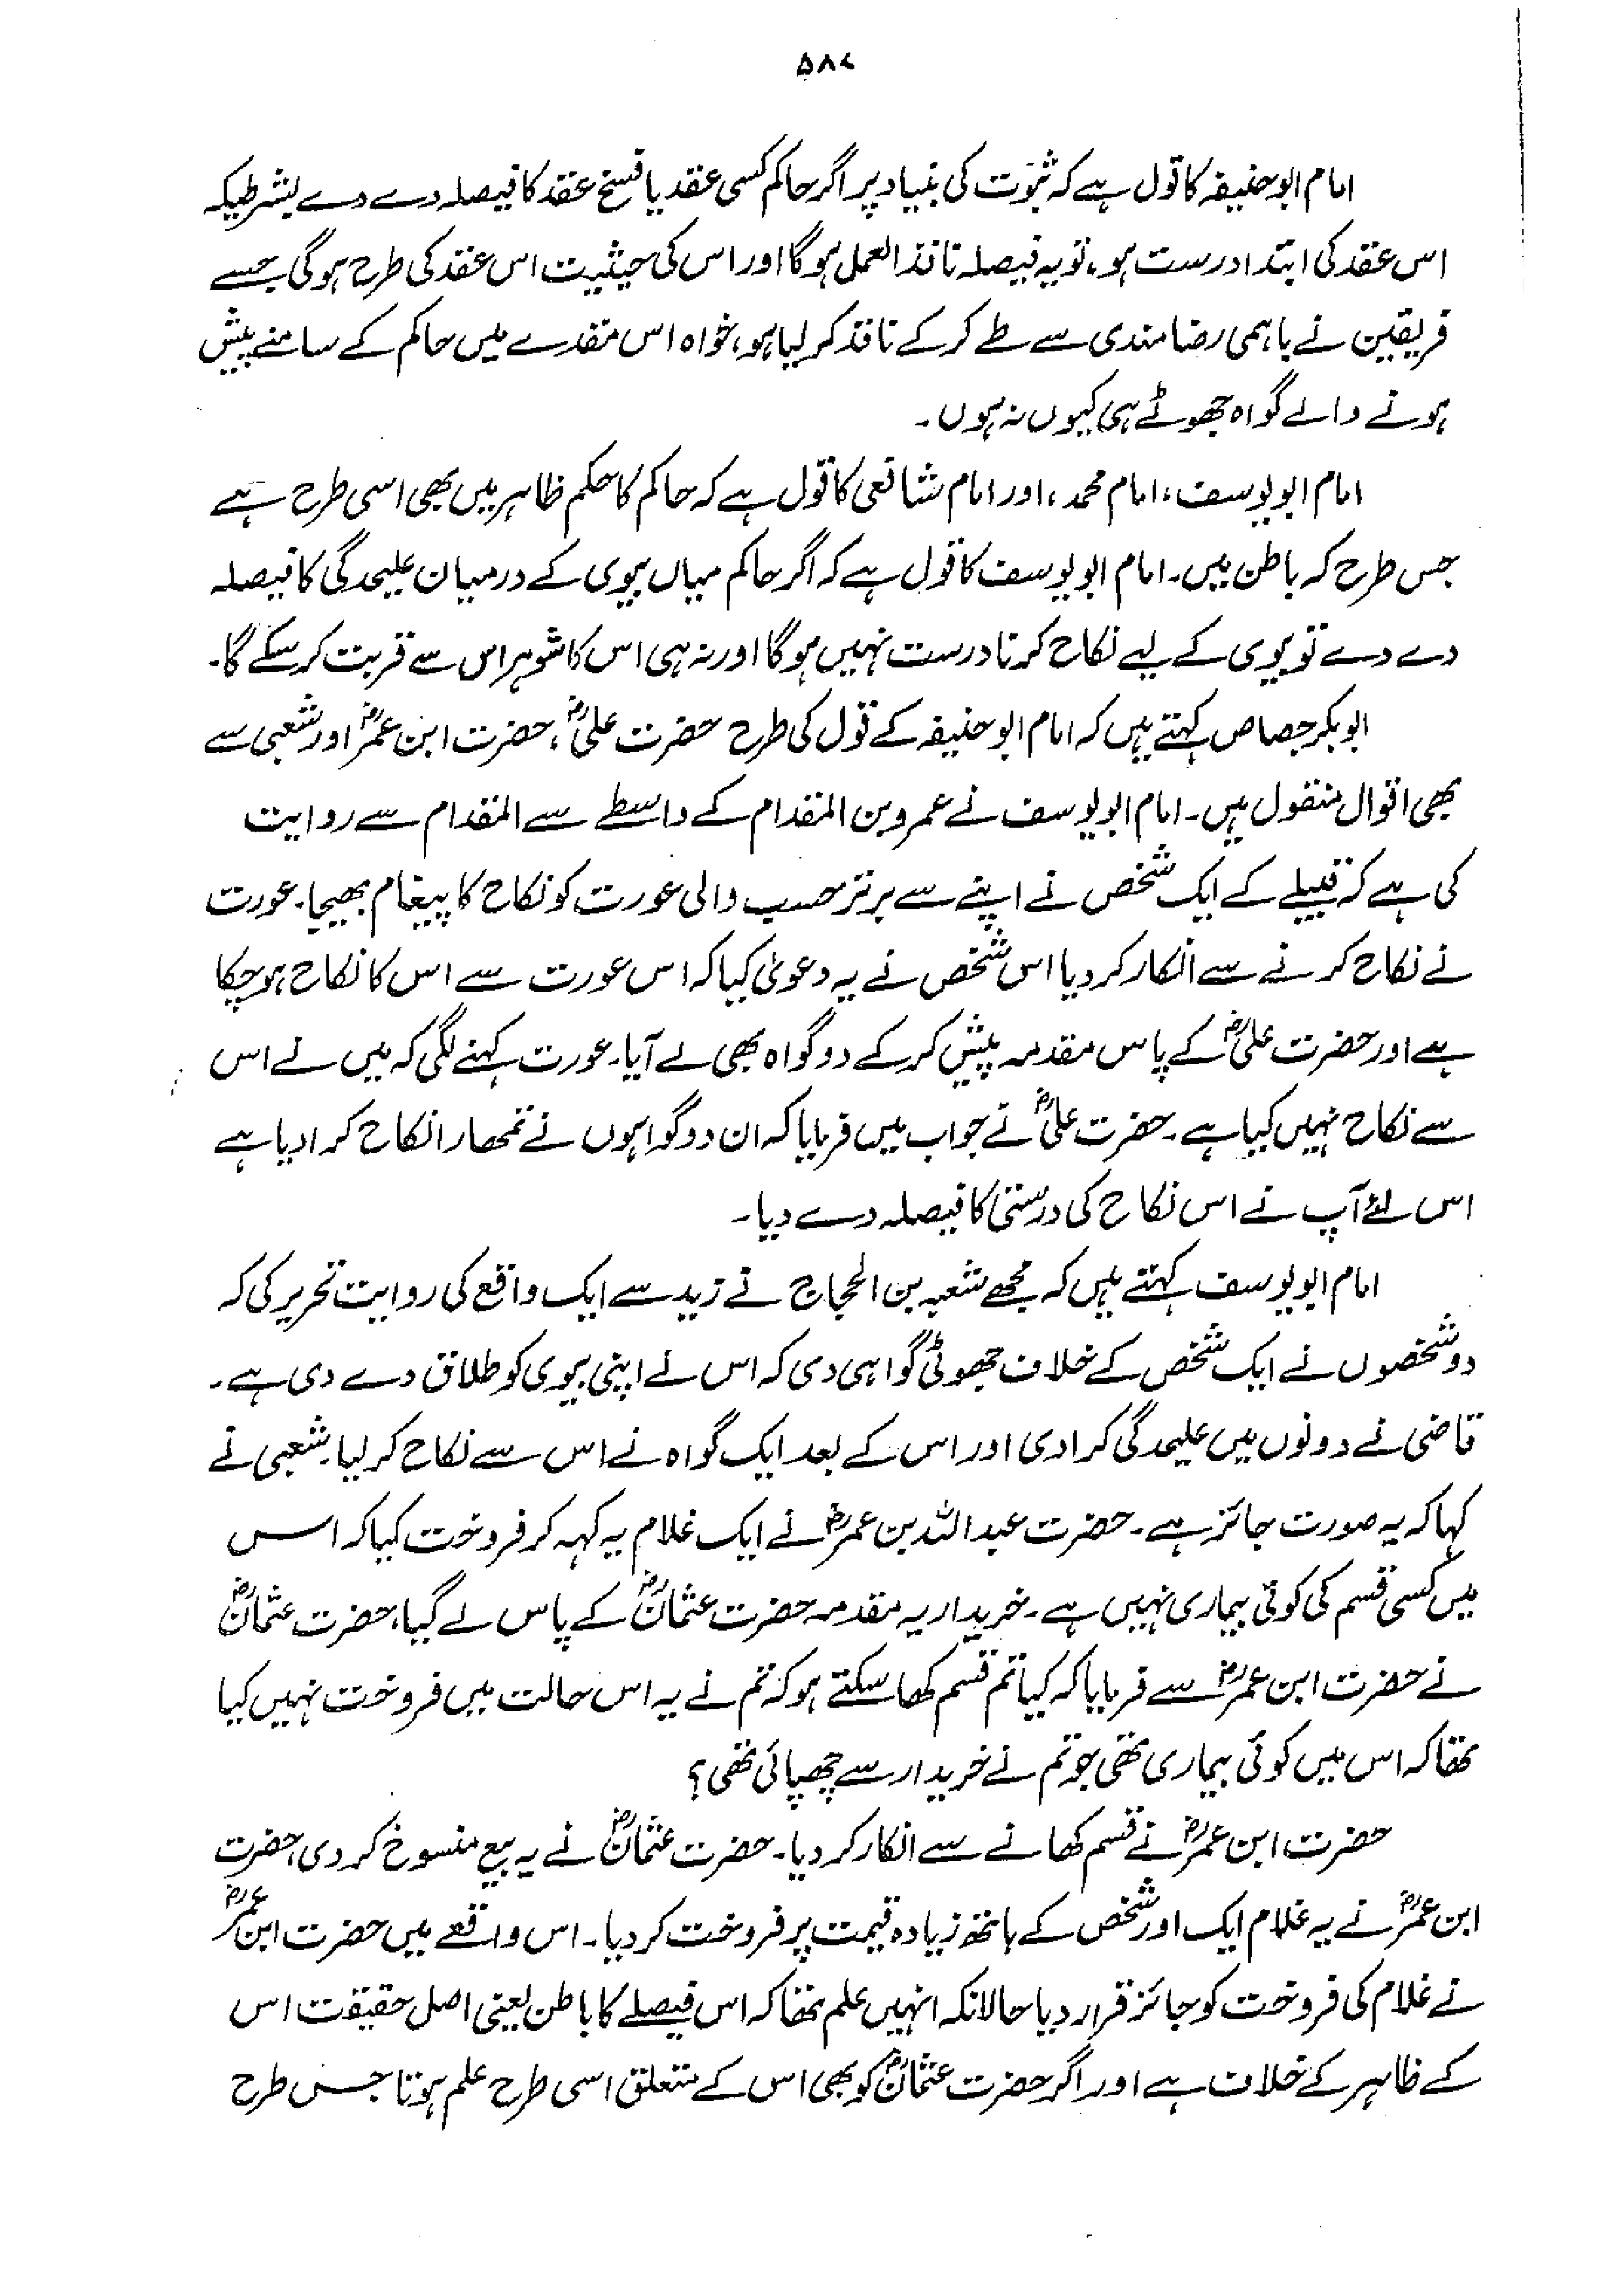 ۵۸۷
امام ابوحنیفہ کا قول ہے کہ ثبوت کی بنیاد پر اگر حاکم کسی عقد یا فسخ عقد کا فیصلہ دے دے بشرطیکہ
اس عقد کی ابتدا درست ہو، تو یہ فیصلہ نافذ العمل ہوگا اور اس کی حیثیت اس عقد کی طرح ہوگی جسے
فریقین نے باہمی رضامندی سے طے کرکے نافذ کر لیا ہو، خواہ اس مقدمے میں حاکم کے سامنے پیش
ہونے والے گواہ جھوٹے ہی کیوں نہ ہوں۔
امام ابویوسف، امام محمد، اور امام شافعی کا قول ہے کہ حاکم کا حکم ظاہر میں بھی اسی طرح ہے
جس طرح کہ باطن میں۔ امام ابویوسف کا قول ہے کہ اگر حاکم میاں بیوی کے درمیان علیحدگی کا فیصلہ
دے دے تو بیوی کے لیے نکاح کرنا درست نہیں ہوگا اور نہ ہی اس کا شوہر اس سے قربت کر سکے گا۔
ابوبکر جصاص کہتے ہیں کہ امام ابوحنیفہ کے قول کی طرح حضرت علیؓ، حضرت ابن عمرؓ اور شعبی سے
بھی اقوال منقول ہیں۔ امام ابویوسف نے عمرو بن المقدام کے واسطے سے المقدام سے روایت
کی ہے کہ قبیلے کے ایک شخص نے اپنے سے برتر حسب والی عورت کو نکاح کا پیغام بھیجا۔ عورت
نے نکاح کرنے سے انکار کر دیا اس شخص نے یہ دعویٰ کیا کہ اس عورت سے اس کا نکاح ہو چکا
ہے اور حضرت علیؓ کے پاس مقدمہ پیش کرکے دو گواہ بھی لے آیا۔ عورت کہنے لگی کہ میں نے اس
سے نکاح نہیں کیا ہے۔ حضرت علیؓ نے جواب میں فرمایا کہ ان دو گواہوں نے تمھارا نکاح کرا دیا ہے
اس لئے آپ نے اس نکاح کی درستی کا فیصلہ دے دیا۔
امام ابویوسف کہتے ہیں کہ مجھے شعبہ بن الحجاج نے زید سے ایک واقع کی روایت تحریر کی کہ
دو شخصوں نے ایک شخص کے خلاف جھوٹی گواہی دی کہ اس نے اپنی بیوی کو طلاق دے دی ہے۔
قاضی نے دونوں میں علیحدگی کرا دی اور اس کے بعد ایک گواہ نے اس سے نکاح کر لیا۔ شعبی نے
کہا کہ یہ صورت جائز ہے۔ حضرت عبداللہ بن عمرؓ نے ایک غلام یہ کہہ کر فروخت کیا کہ اس
میں کسی قسم کی کوئی بیماری نہیں ہے۔ خریدار یہ مقدمہ حضرت عثمانؓ کے پاس لے گیا، حضرت عثمانؓ
نے حضرت ابن عمرؓ سے فرمایا کہ کیا تم قسم کھا سکتے ہو کہ تم نے یہ اس حالت میں فروخت نہیں کیا
تھا کہ اس میں کوئی بیماری تھی جو تم نے خریدار سے چھپائی تھی؟
حضرت ابن عمرؓ نے قسم کھانے سے انکار کر دیا۔ حضرت عثمانؓ نے یہ بیع منسوخ کر دی، حضرت
ابن عمرؓ نے یہ غلام ایک اور شخص کے ہاتھ زیادہ قیمت پر فروخت کر دیا۔ اس واقعے میں حضرت ابن عمرؓ
نے غلام کی فروخت کو جائز قرار دیا حالانکہ انہیں علم تھا کہ اس فیصلے کا باطن یعنی اصل حقیقت اس
کے ظاہر کے خلاف ہے اور اگر حضرت عثمانؓ کو بھی اس کے متعلق اسی طرح علم ہوتا جس طرح